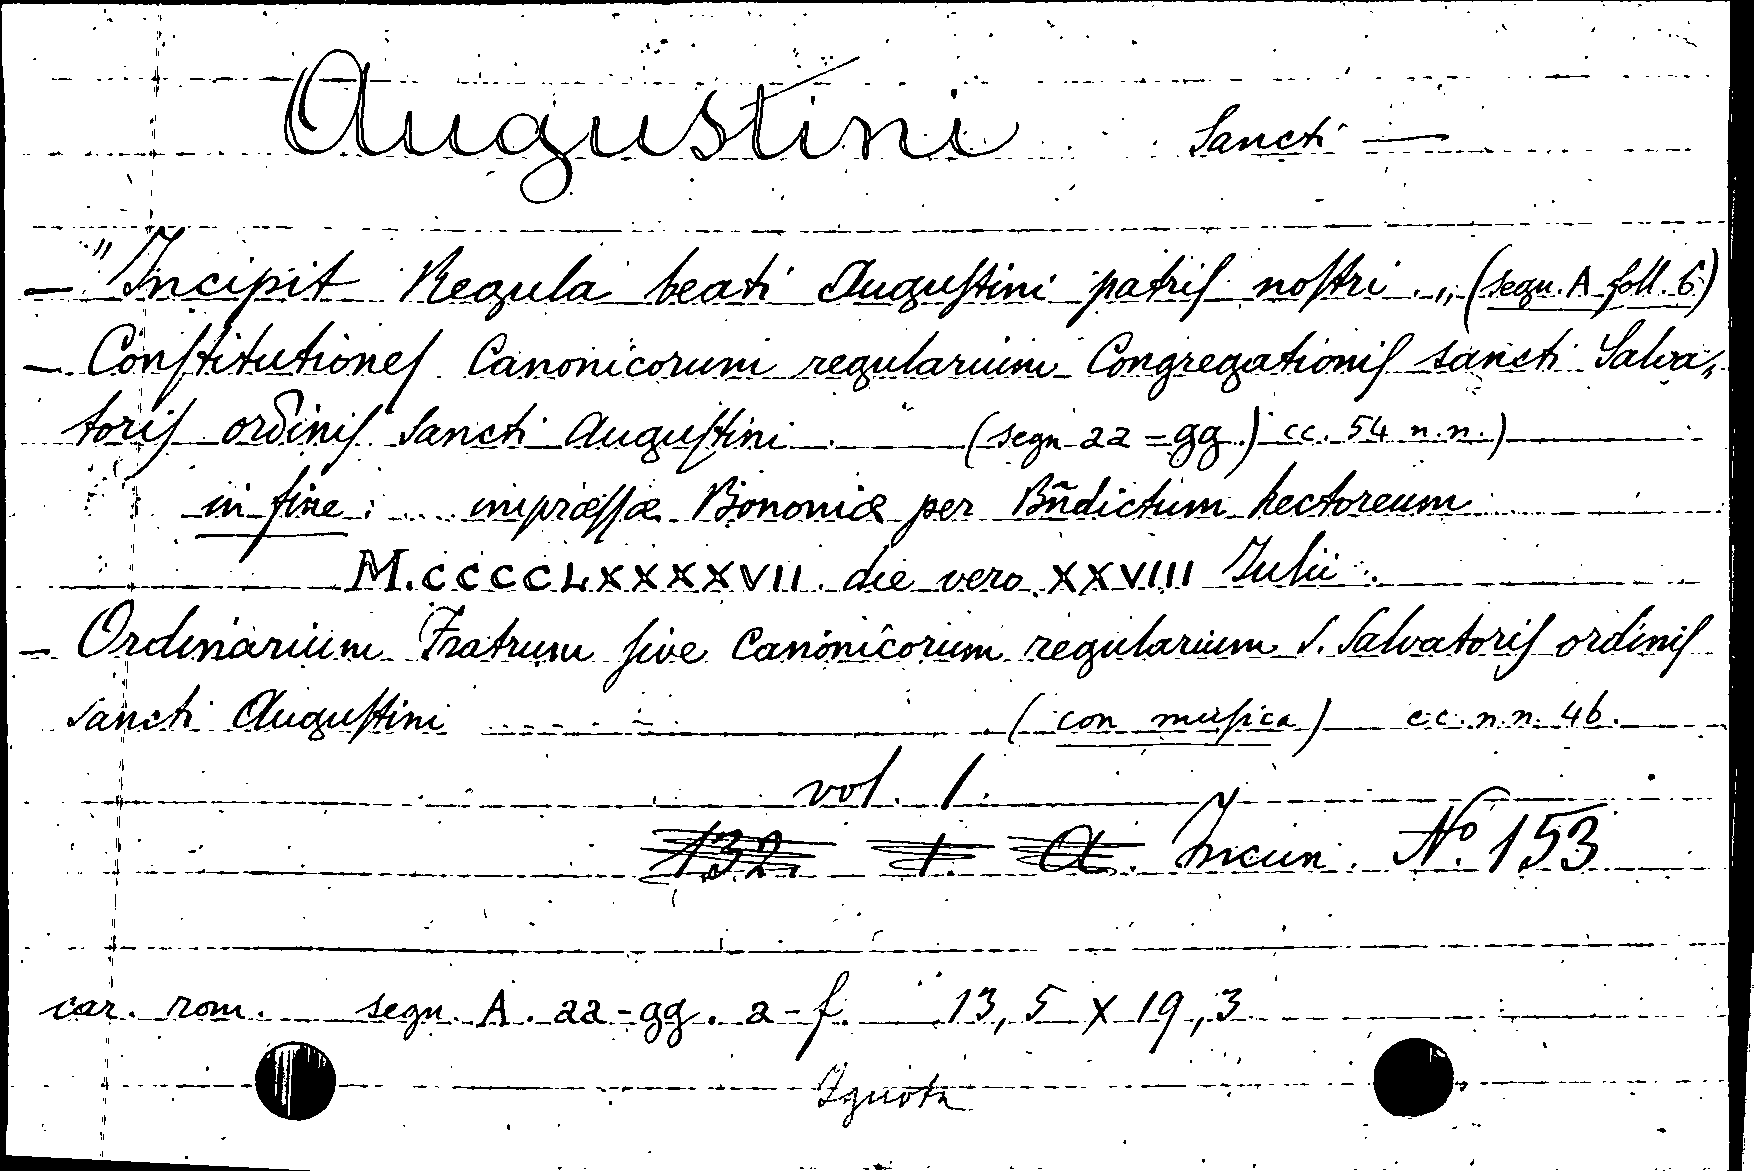 Augustini Sancti —
— "Incipit Regula beati Auguſtini patriſ noſtri „ (segn. A foll. 6)
— Conſtitutioneſ Canonicorum regularium Congregationiſ sancti Salva„
toriſ ordiniſ Sancti Auguſtini (segn aa = gg.) cc. 54 n.n.)
in fine: ... impræſſæ Bononiæ per Bñdictum hectoreum
M.CCCCLXXXXVII die vero XXVIII Iulii.
— Ordinarium Fratrum ſive Canonicorum regularium S. Salvatoriſ ordiniſ
Sancti Auguſtini (con muſica) cc. n.n. 46.
vol. 1.
132. 1. A. Incun. Nº. 153
car. rom. segn. A. aa-gg. a-f. 13,5 X 19,3
Ignota